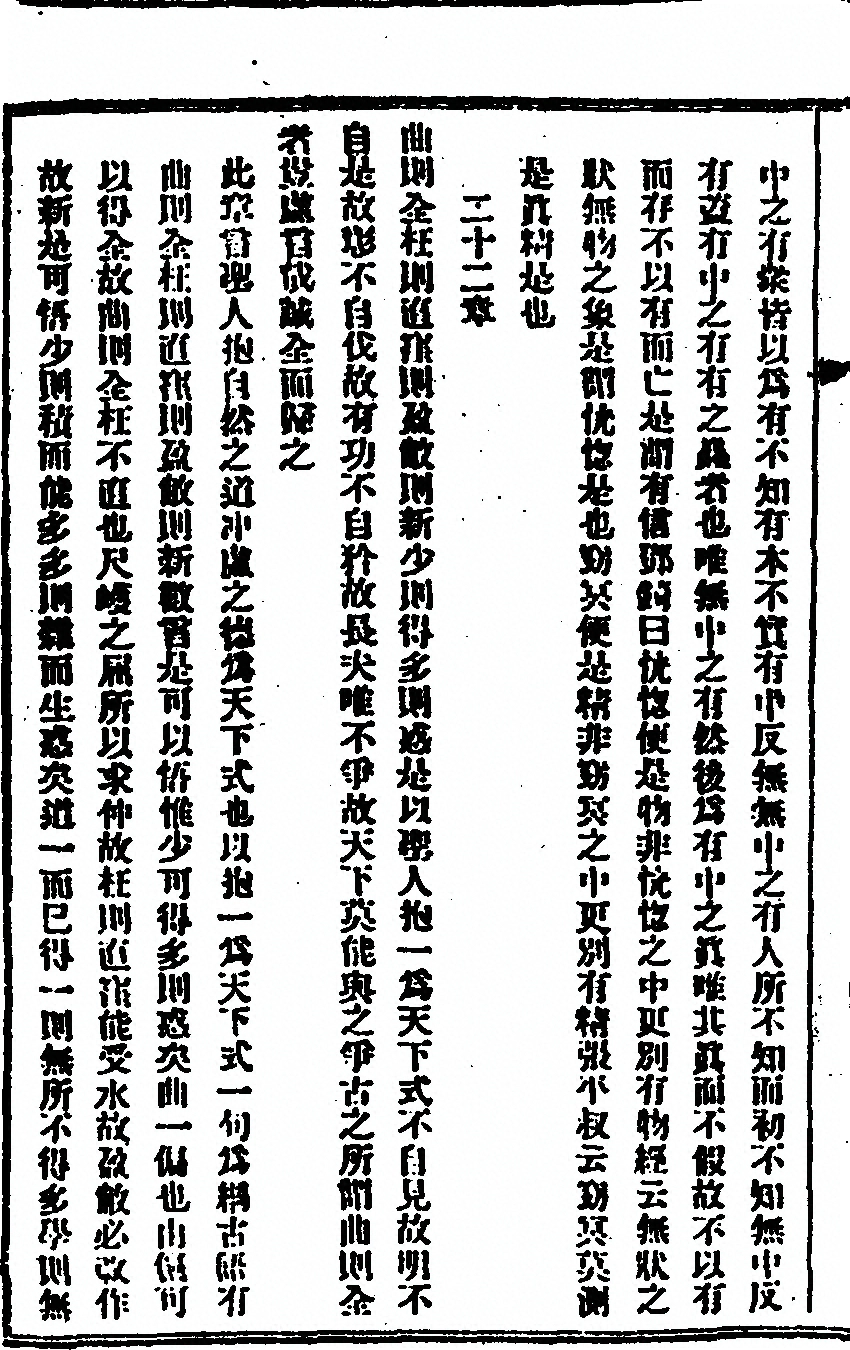 中之有衆皆以爲有不知有本不實有中反無無中之有人所不知而初不知無中反
有眞有中之有有之蟲者也唯無中之有然後爲有中之眞唯其眞而不假故不以有
而存不以有而亡是謂有信鄧錡曰恍惚便是物非恍惚之中更別有物經云無狀之
狀無物之象是謂恍惚是也窈冥便是精非窈冥之中更別有精張平叔云窈冥莫測
是眞精是也
二十二章
曲則全枉則直窪則盈敝則新少則得多則惑是以聖人抱一爲天下式不自見故明不
自是故彰不自伐故有功不自矜故長夫唯不爭故天下莫能與之爭古之所謂曲則全
者豈虛言哉誠全而歸之
此章言聖人抱自然之道沖虛之德爲天下式也以抱一爲天下式一句爲綱古語有
曲則全枉則直窪則盈敝則新數言是可以悟惟少可得多則惑矣曲一偏也由偏可
以得全故曲則全枉不直也尺蠖之屈所以求伸故枉則直窪能受水故盈敝必改作
故新是可悟少則積而能多多則雜而生惑矣道一而已得一則無所不得多學則無